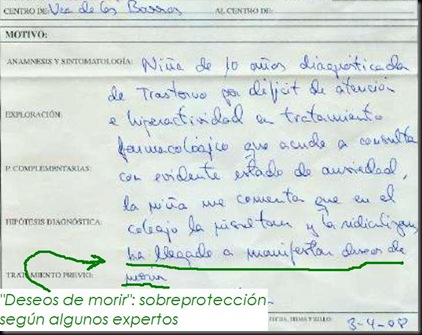 CENTRO DE: Vva de los Barros AL CENTRO DE:
MOTIVO:
ANAMNESIS Y SINTOMATOLOGÍA: Niña de 10 años diagnosticada
de Trastorno por déficit de atención
EXPLORACIÓN: e hiperactividad en tratamiento
farmacológico que acude a consulta
P. COMPLEMENTARIAS: con evidente estado de ansiedad,
la niña me comenta que en el
HIPÓTESIS DIAGNÓSTICA: colegio la insultan y la ridiculizan,
ha llegado a manifestar deseos de
TRATAMIENTO PREVIO: morir
"Deseos de morir": sobreprotección
según algunos expertos
FIRMA Y SELLO: 3-4-08